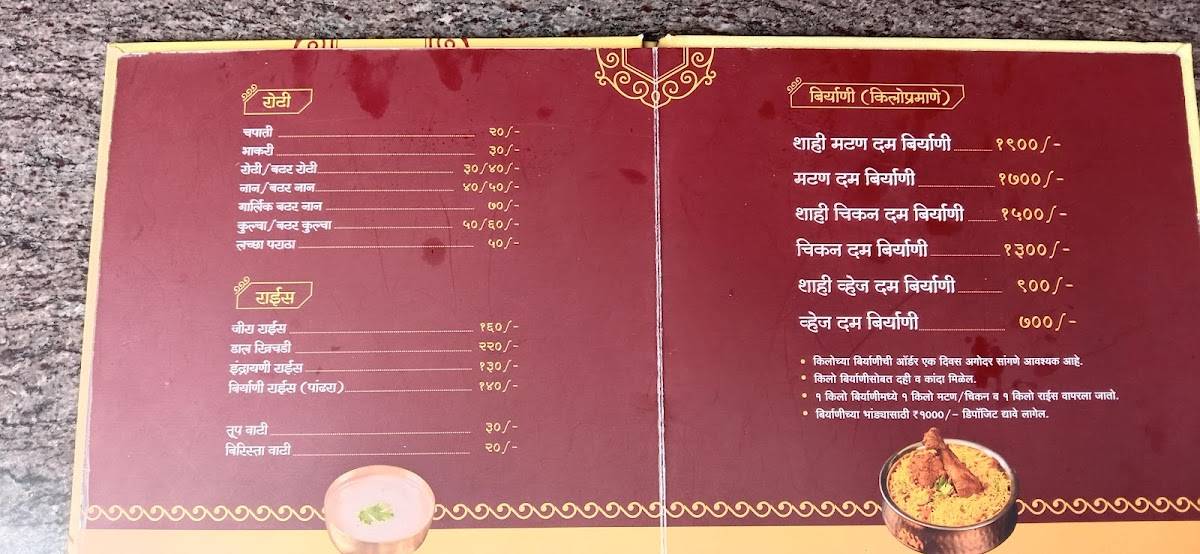 रोटी
चपाती २०/-
भाकरी ३०/-
रोटी/बटर रोटी ३०/४०/-
नान/बटर नान ४०/५०/-
गार्लिक बटर नान ७०/-
कुल्चा/बटर कुल्चा ५०/६०/-
लच्छा पराठा ५०/-
राईस
जीरा राईस १६०/-
डाल खिचडी २२०/-
इंद्रायणी राईस १३०/-
बिर्याणी राईस (पांढरा) १४०/-
तूप वाटी ३०/-
बिरिस्ता वाटी २०/-
बिर्याणी (किलोप्रमाणे)
शाही मटण दम बिर्याणी १९००/-
मटण दम बिर्याणी १७००/-
शाही चिकन दम बिर्याणी १५००/-
चिकन दम बिर्याणी १३००/-
शाही व्हेज दम बिर्याणी ९००/-
व्हेज दम बिर्याणी ७००/-
• किलोच्या बिर्याणीची ऑर्डर एक दिवस अगोदर सांगणे आवश्यक आहे.
• किलो बिर्याणीसोबत दही व कांदा मिळेल.
• १ किलो बिर्याणीमध्ये १ किलो मटण/चिकन व १ किलो राईस वापरला जातो.
• बिर्याणीच्या भांड्यासाठी ₹१०००/- डिपॉजिट द्यावे लागेल.